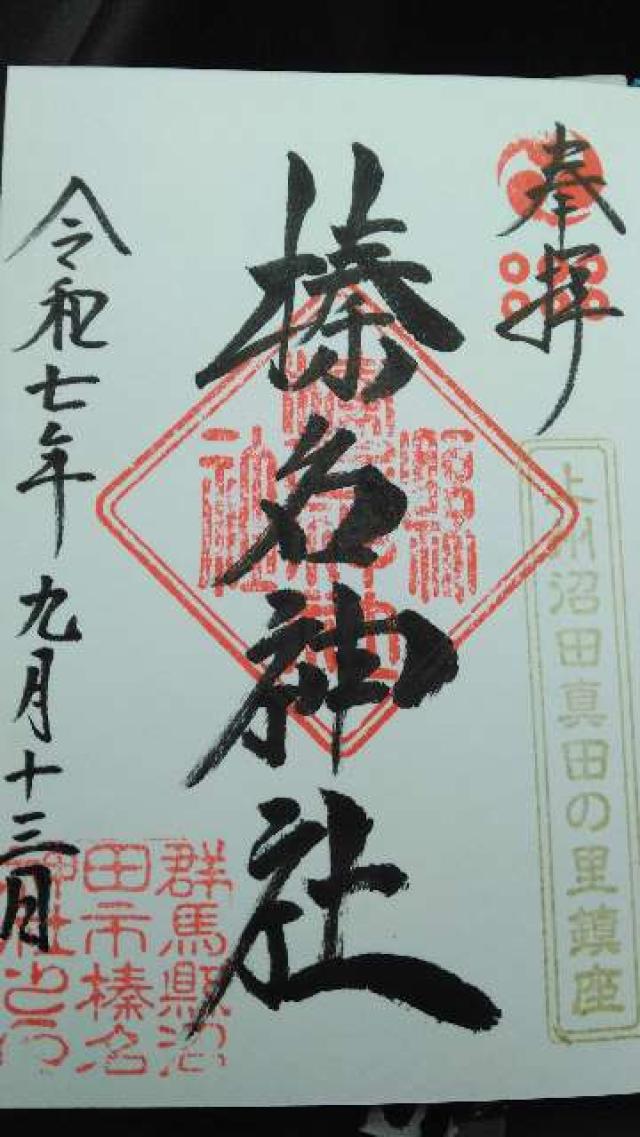 奉拝
上州沼田真田の里鎮座
榛名神社
群馬縣沼
田市榛名
神社之印
令和七年九月十三日